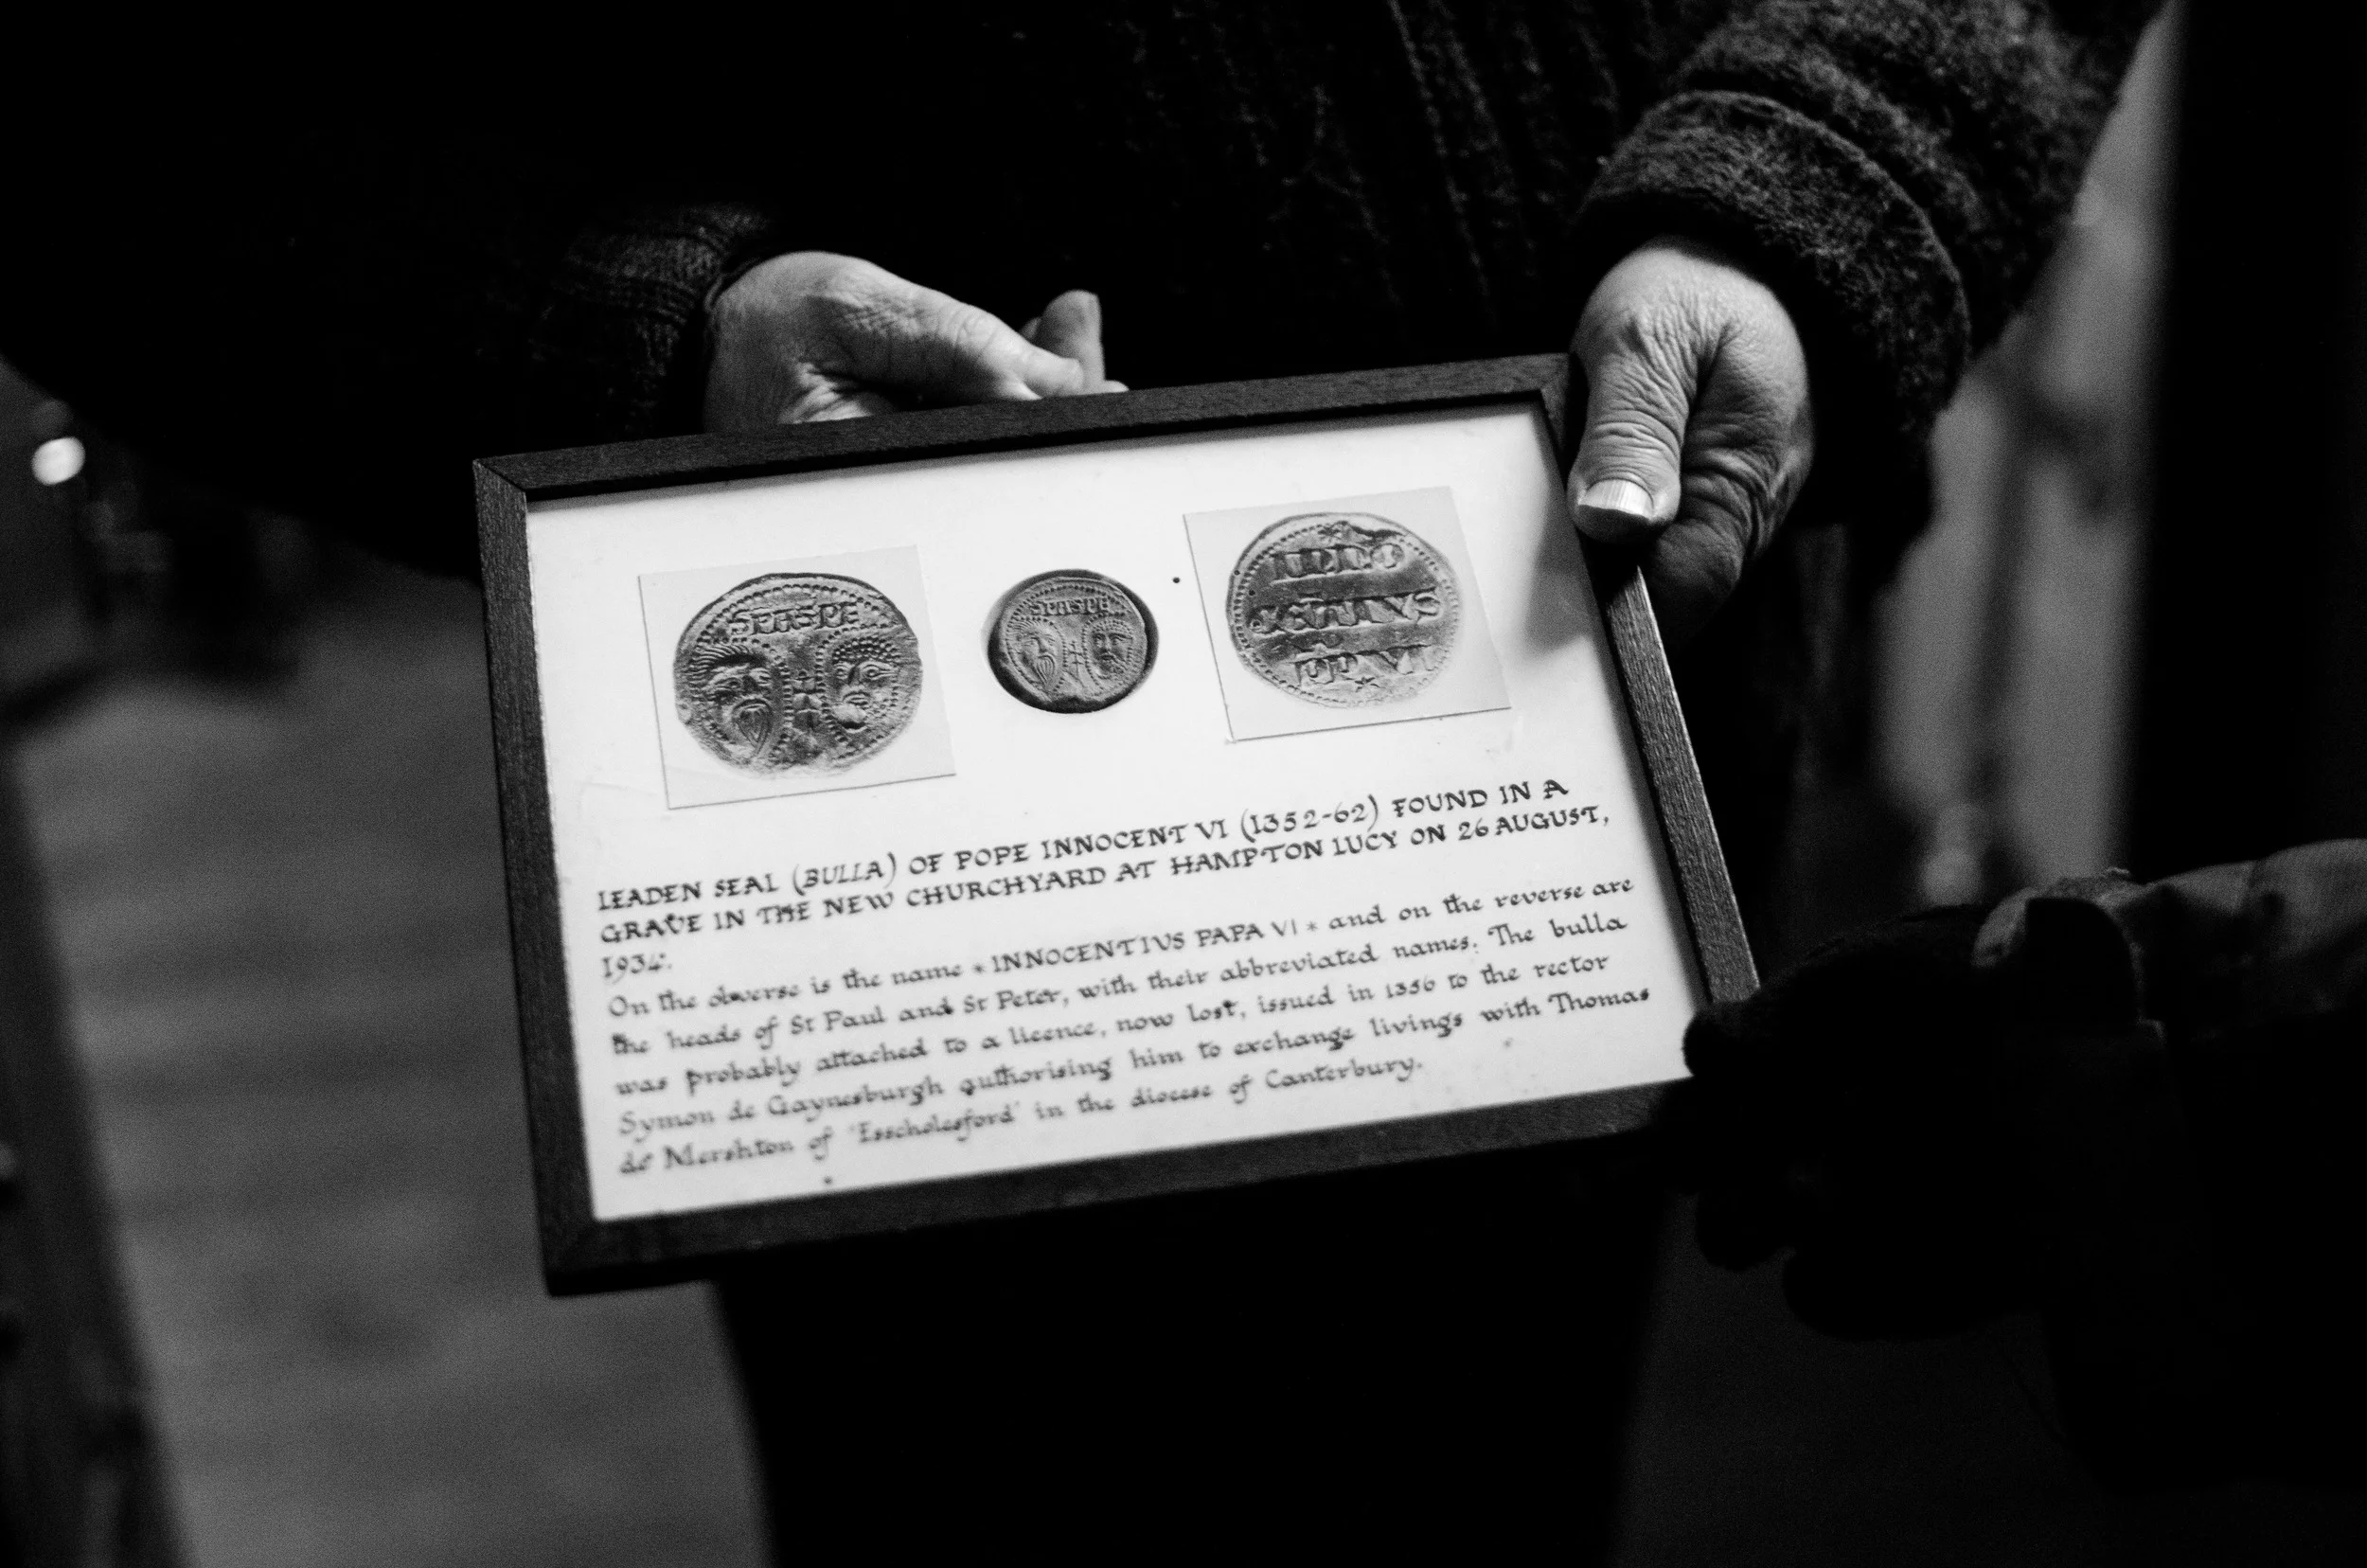 SPASPE
SPASPE
INNO
CENTIVS
PP VI
LEADEN SEAL (BULLA) OF POPE INNOCENT VI (1352-62) FOUND IN A
GRAVE IN THE NEW CHURCHYARD AT HAMPTON LUCY ON 26 AUGUST,
1934.
On the obverse is the name * INNOCENTIVS PAPA VI * and on the reverse are
the heads of St Paul and St Peter, with their abbreviated names. The bulla
was probably attached to a licence, now lost, issued in 1356 to the rector
Symon de Gaynesburgh authorising him to exchange livings with Thomas
de Mershton of 'Esscholesford' in the diocese of Canterbury.